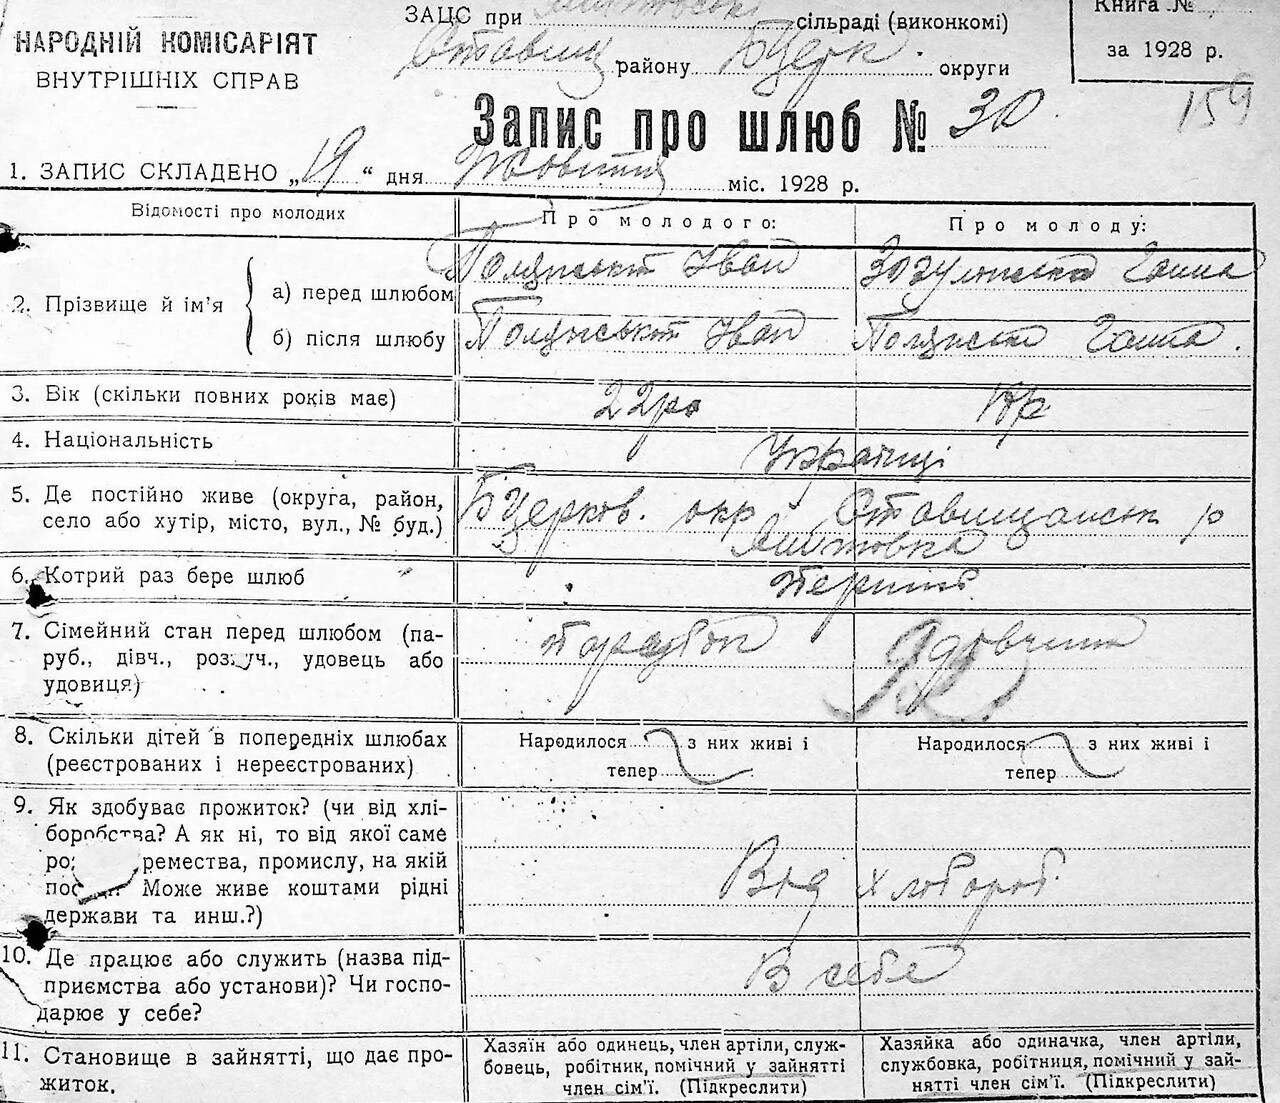 ЗАЦС при сільраді (виконкомі)
Ставищ району Бцерк. округи
Книга №
за 1928 р.
159
НАРОДНІЙ КОМІСАРІЯТ
ВНУТРІШНІХ СПРАВ
Запис про шлюб № 30
1. ЗАПИС СКЛАДЕНО „19“ дня Жовтня міс. 1928 р.
Відомості про молодих
Про молодого:
Про молоду:
2. Прізвище й ім’я
а) перед шлюбом
Іван
Ганна
б) після шлюбу
Іван
Ганна.
3. Вік (скільки повних років має)
22ро
4. Національність
Українці
5. Де постійно живе (округа, район,
село або хутір, місто, вул., № буд.)
Бцерков. окр Ставищанськ р
6. Котрий раз бере шлюб
7. Сімейний стан перед шлюбом (па-
руб., дівч., розлуч., удовець або
удовиця)
парубок
дівчина
8. Скільки дітей в попередніх шлюбах
(реєстрованих і нереєстрованих)
Народилося з них живі і
тепер
Народилося з них живі і
тепер
9. Як здобуває прожиток? (чи від хлі-
боробства? А як ні, то від якої саме
ремества, промислу, на якій
Може живе коштами рідні
держави та инш.?)
Від хлібороб.
10. Де працює або служить (назва під-
приємства або установи)? Чи госпо-
дарює у себе?
В себе
11. Становище в зайнятті, що дає про-
житок.
Хазяїн або одинець, член артіли, служ-
бовець, робітник, помічний у зайнятті
член сім’ї. (Підкреслити)
Хазяйка або одиначка, член артіли,
службовка, робітниця, помічний у зай-
нятті член сім’ї. (Підкреслити)